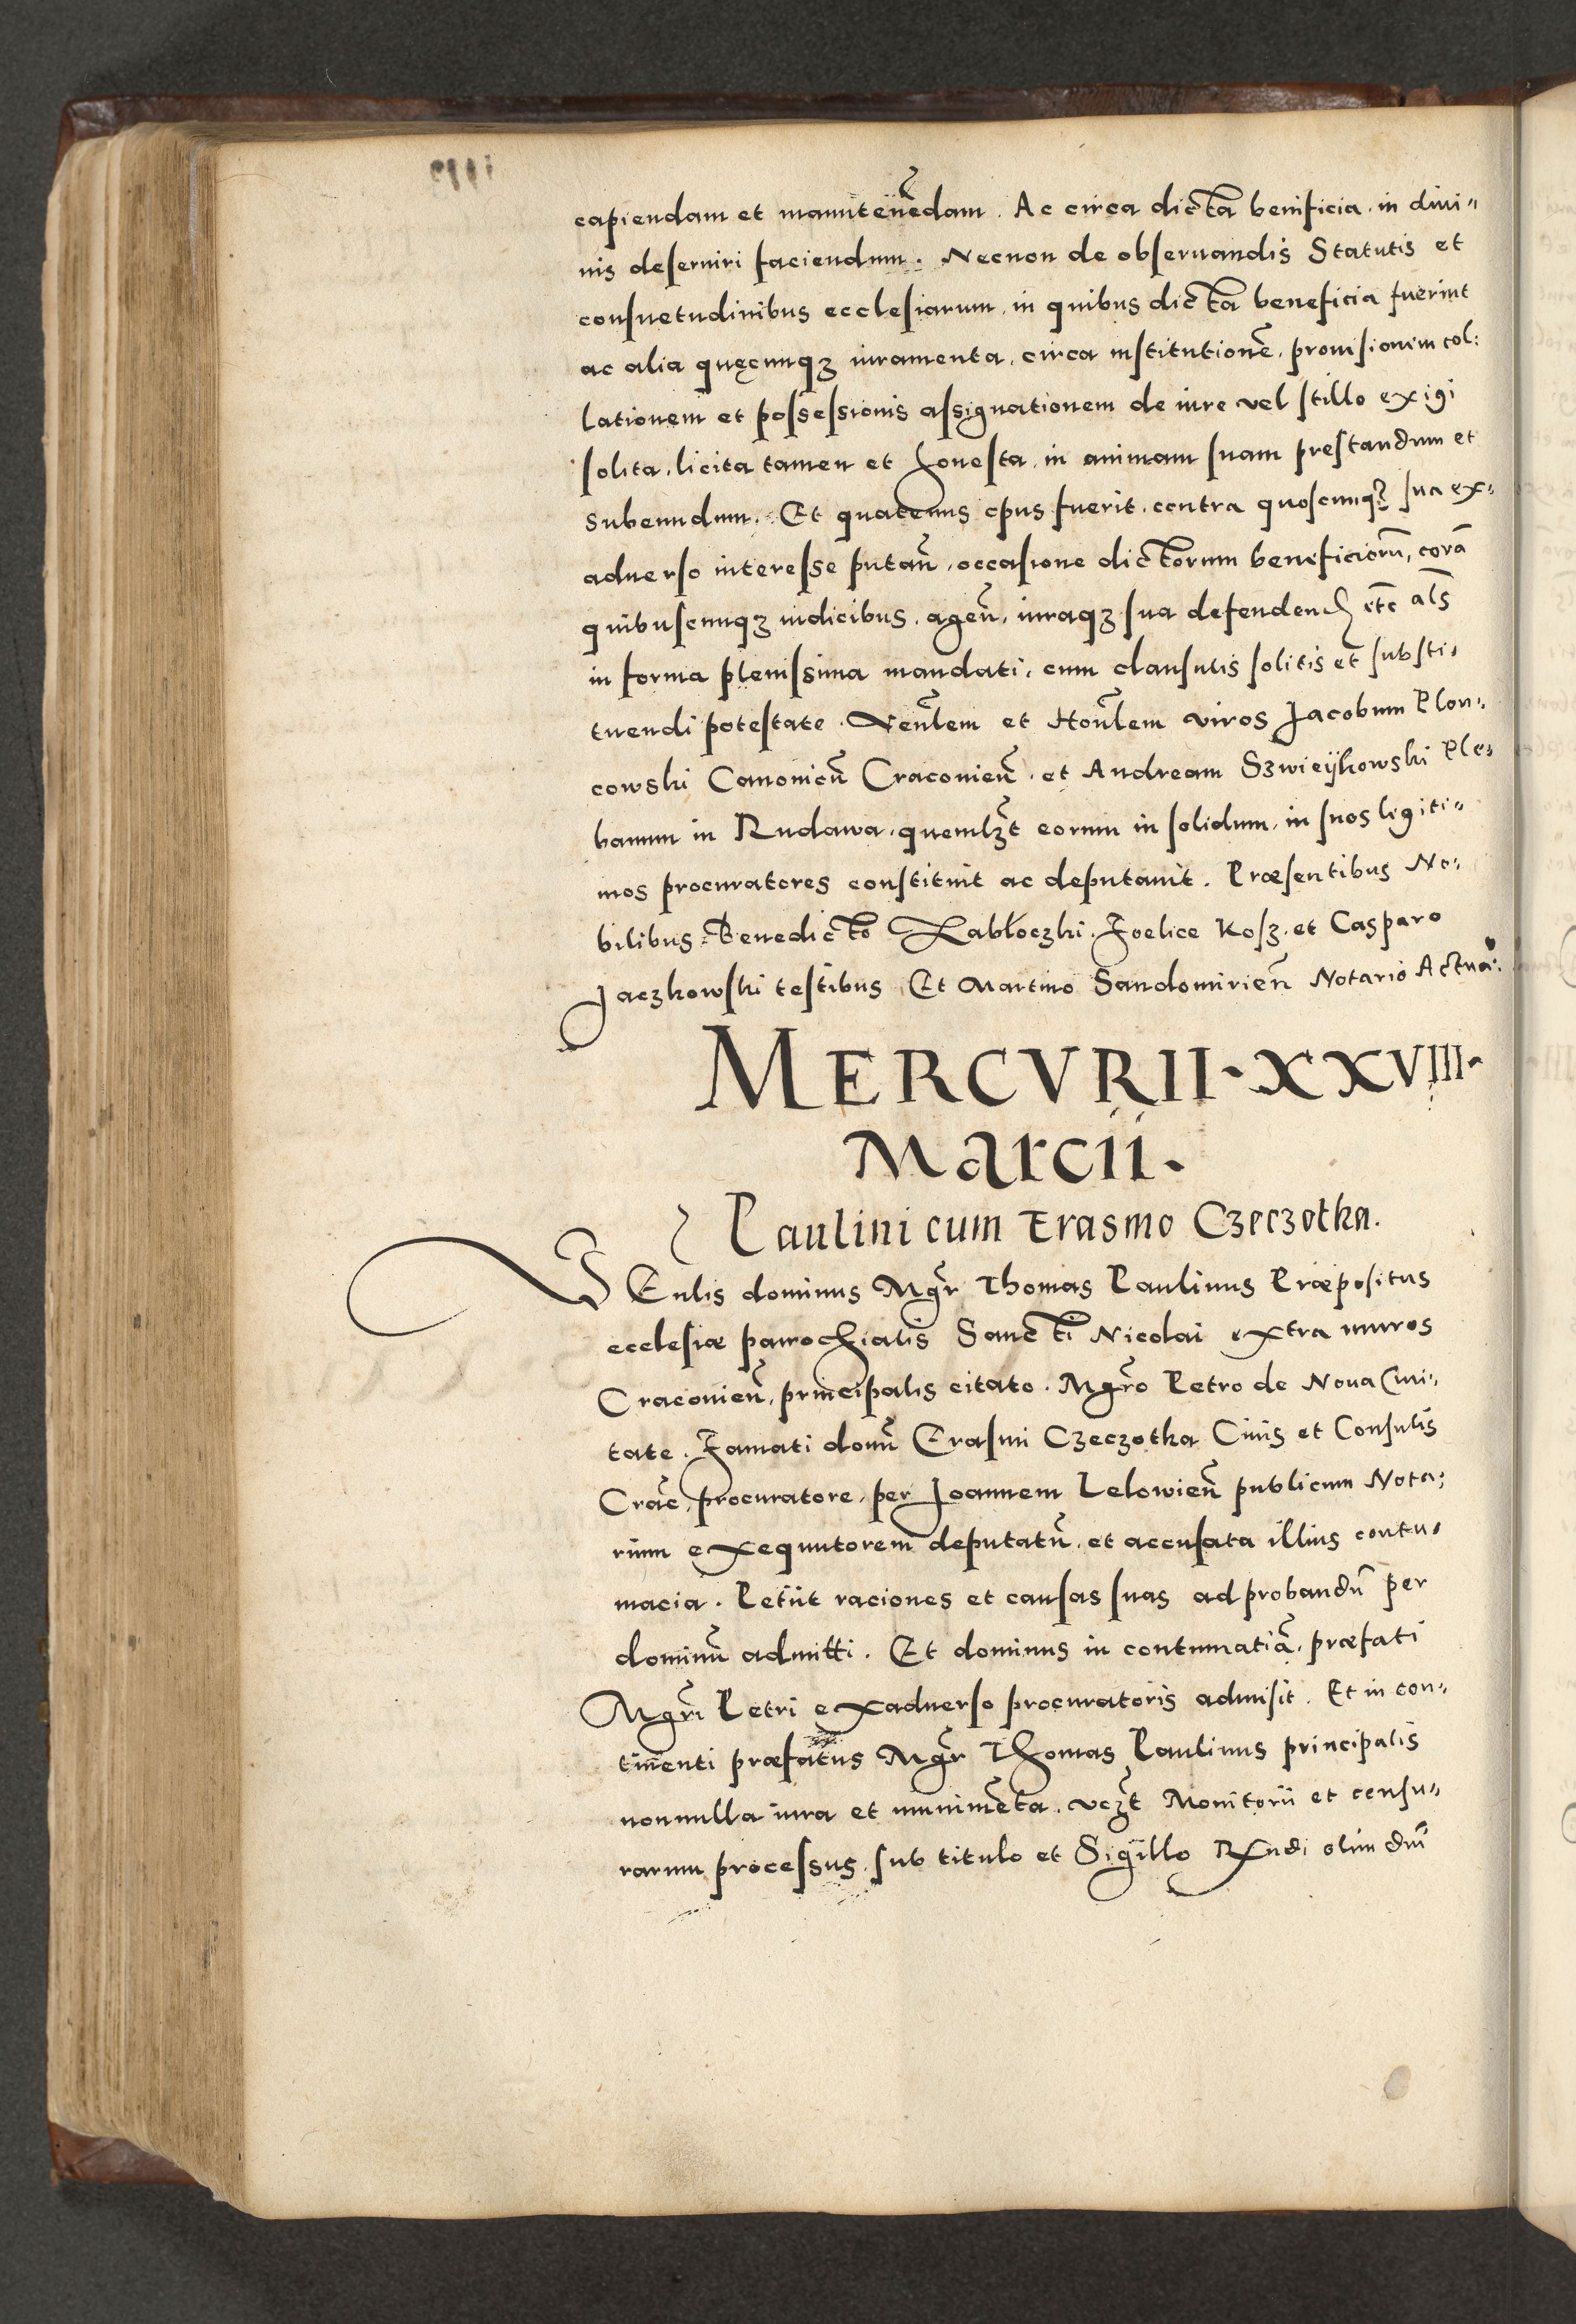 capiendam et manutenēdam. Ac circa dicta benificia in diui-
nis deseruiri faciendum. Necnon de obseruandis Statutis et
consuetudinibus ecclesiarum, in quibus dicta beneficia fuerint
ac alia quęcunqꝫ iuramenta, circa institutionē, prouisionem col:
lationem et possessionis assignationem de iure vel stillo exigi
solita, licita tamen et honesta, in animam suam prestandum et
subeundum. Et quatenus opus fuerit, contra quoscunqꝫ sua ex-
aduerso interesse putan̄, occasione dictorum beneficiorū, corā
quibuscunqꝫ iudicibus, agen̄, iuraqꝫ sua defenden̄ etc als̄
in forma plenissima mandati, cum clausulis solitis et substi-
tuendi potestate. Ven̄lem et Hon̄lem viros Jacobum Plon-
cowski Canonicū Cracouien̄. et Andream Szwieÿkowski Ple-
banum in Rudawa, quemlꝫt eorum in solidum, in suos legiti-
mos procuratores constituit ac deputauit. Præsentibus No-
bilibus Benedicto Zabłoczki, Foelice Kosz, et Casparo
Jaczkowski testibus Et Martino Sandomirien̄ Notario Actuā.
MERCVRII·XXVIII·
Marcii.
Paulini cum Erasmo Czeczotka.
VEnlis dominus Mgr̄ Thomas Paulinus Præpositus
ecclesiæ parochialis Sancti Nicolai extra muros
Cracouien̄, principalis citato. Mgr̄o Petro de Noua Ciui-
tate. Famati domn̄ Erasmi Czeczotka Ciuis et Consulis
Crac̄, procuratore, per Joannem Lelowien̄ publicum Nota-
rium exequutorem deputatū, et accusata illius contu-
macia. Petiit raciones et causas suas ad probandū per
dominū admitti. Et dominus in contumatiā, præfati
Mgr̄i Petri exaduerso procuratoris admisit. Et in con-
tinenti præfatus Mgr̄ Thomas Paulinus principalis
nonnulla iura et munimēta, vcꝫt Monitorii et censu-
rarum processus, sub titulo et Sigillo Rn̄di olim dn̄i